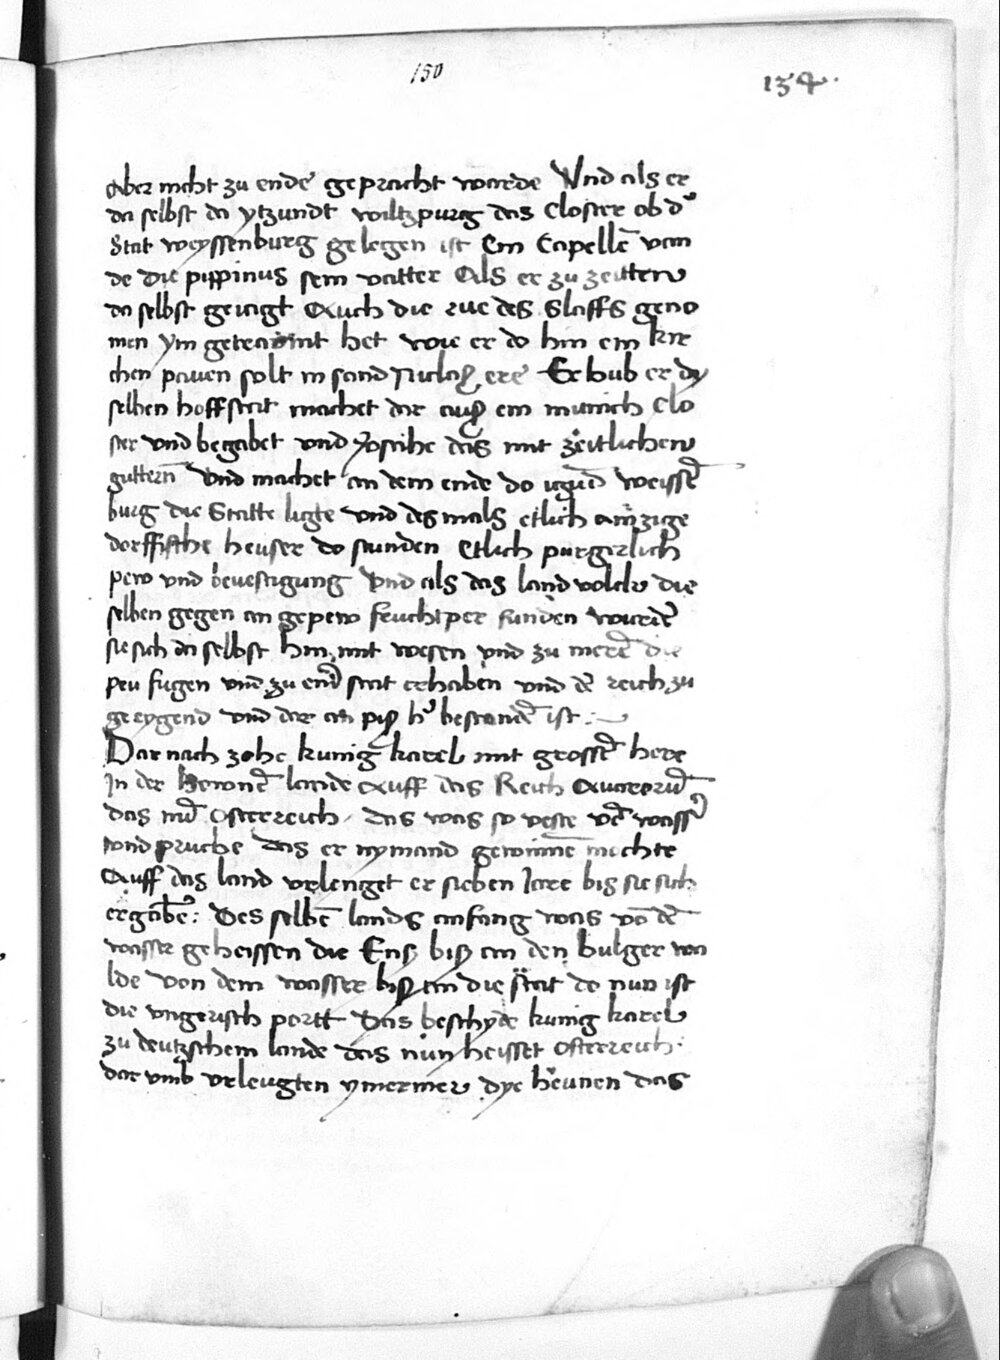 150
134.
Aber nicht zu ende gepracht warde Vnd als er
da selbst da ytzundt wiltzpurg das closter ob d'
Stat weyssenburg gelegen ist Ein Capellē van
de die pippinus sein vatter Als er zu zeitten
da selbst geiagt Auch die rue des Slaffs geno
men ym getraumt het wie er do hin ein kir
chen pauen solt in sand Niclaß ere Er hub er dy
selben hoffstat machet dar auß ein munich clo
ster vnd begabet vnd das mit zeitlichen
guttern Vnd machet an dem ende do weissē
burg die Statte ligte vnd desmals etlich aintzige
dorffische heuser do stunden Etlich purgerlich
pew vnd bevestigung Vnd als das land volck die
selben gegen an gepew feuchtper funden wurdē
sie sich da selbst hin mit wesen vnd zu merē die
peu fugen vnd zu einē stat erhaben vnd dē reich zu
geeygend vnd dar an piß h' bestandē ist :~
Dar nach zohe kunig karel mit grossē here
In der hewnē lande Auff das Reich Auarorū
das nu Osterreich das was so veste vō wassē
vnd pruche das er nymand gewinnē mochte
Auff das land vrlenget er sieben Jare bis sie sich
ergabē : Des selbē lands anfang was vō dē
wasser geheissen die Enß biß an den bulger wa
lde Von dem wasser biß an die stat do nun ist
die vngerisch portt Das beschyde kunig karel
zu deutzschem lande das nun heisset Osterreich :
dar vmb vrleugten ymermer dye heunen das